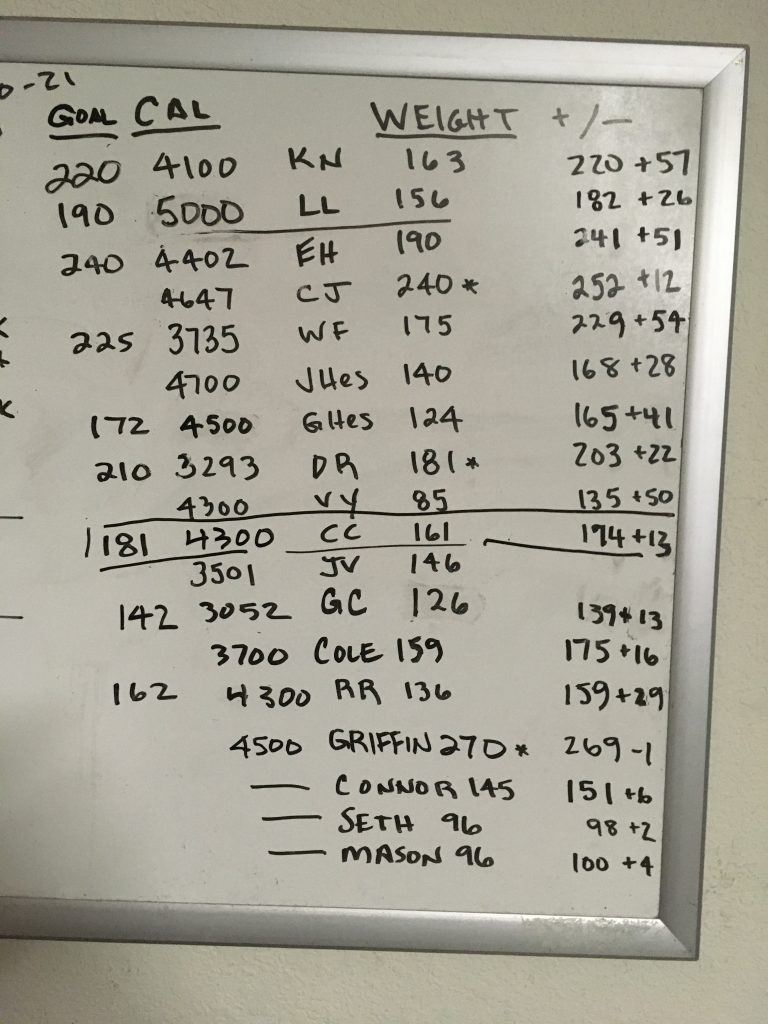 0-21
GOAL CAL WEIGHT +/-
220 4100 KN 163 220 +57
190 5000 LL 156 182 +26
240 4402 EH 190 241 +51
4647 CJ 240 * 252 +12
225 3735 WF 175 229 +54
4700 JHes 140 168 +28
172 4500 GHes 124 165 +41
210 3293 DR 181 * 203 +22
4300 VY 85 135 +50
181 4300 CC 161 174 +13
3501 JV 146
142 3052 GC 126 139 + 13
3700 COLE 159 175 +16
162 4300 RR 136 159 +29
4500 GRIFFIN 270 * 269 -1
— CONNOR 145 151 +6
— SETH 96 98 +2
— MASON 96 100 +4